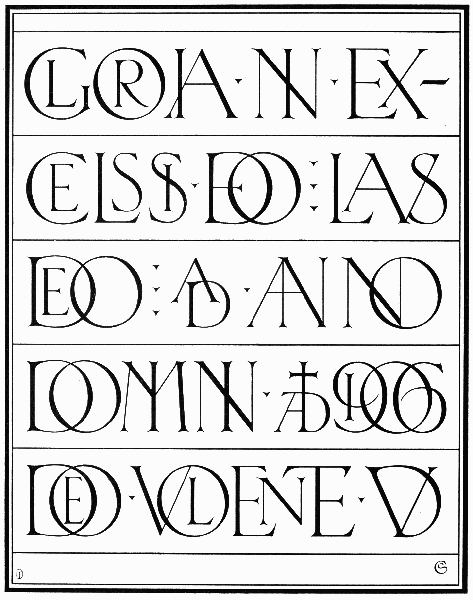 GLORIA · IN · EX-
CELSIS · DEO ⋮ LAVS
DEO ⋮ AD · ANNO
DOMINI · AD 1906
DEO · VOLENTE · DV